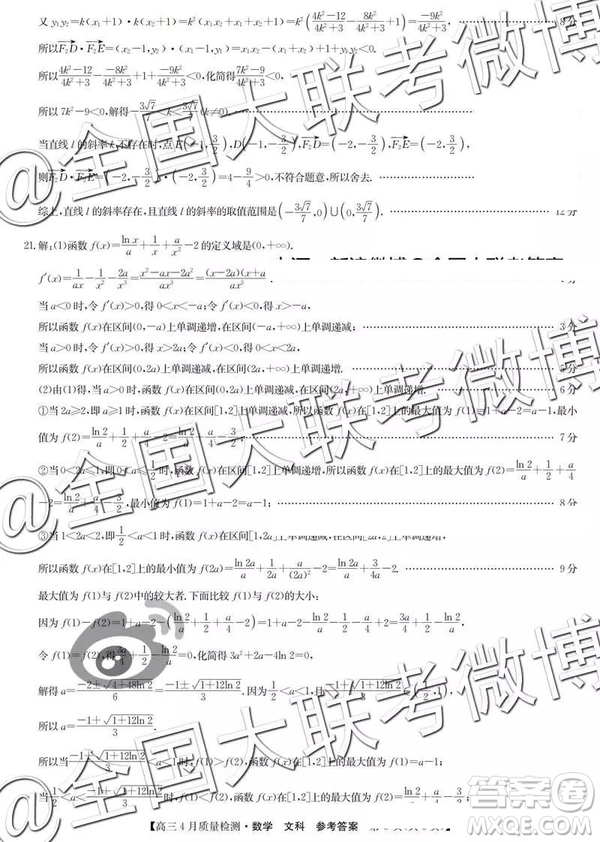 又 y₁y₂=k(x₁+1)·k(x₂+1)=k²(x₁x₂+x₁+x₂+1)=k²(4k²-12/4k²+3-8k²/4k²+3+1)=-9k²/4k²+3, 8分
所以F₂D·F₂E=(x₂-1,y₂)·(x₁-1,y₁)=x₁x₂-(x₁+x₂)+1+y₁y₂<0.
所以4k²-12/4k²+3--8k²/4k²+3+1+-9k²/4k²+3<0,化简得7k²-9/4k²+3<0.
所以 7k²-9<0,解得-3√7/7<k<3√7/7(k≠0).
当直线 l 的斜率 k 不存在时,点E(-1,3/2),D(-1,-3/2),F₂D=(-2,-3/2),F₂E=(-2,3/2),
则F₂D·F₂E=(-2,-3/2)·(-2,3/2)=4-9/4>0,不符合题意,所以舍去.
综上,直线 l 的斜率存在,且直线 l 的斜率的取值范围是(-3√7/7,0)∪(0,3√7/7). 12分
21.解:(1)函数 f(x)=ln x/a+1/x+a/x²-2的定义域是(0,+∞).
f′(x)=1/ax-1/x²-2a/x³=x²-ax-2a²/ax³=(x+a)(x-2a)/ax³.
当 a<0 时,令 f′(x)>0,得 0<x<-a;令 f′(x)<0,得 x>-a,
所以函数 f(x)在区间(0,-a)上单调递增,在区间(-a,+∞)上单调递减; 3分
当 a>0 时,令 f′(x)>0,得 x>2a;令 f′(x)<0,得 0<x<2a,
所以函数 f(x)在区间(0,2a)上单调递减,在区间(2a,+∞)上单调递增. 5分
(2)由(1)得,当 a>0 时,函数 f(x)在区间(0,2a)上单调递减,在区间(2a,+∞)上单调递增. 6分
①当 2a≥2,即 a≥1 时,函数 f(x)在区间[1,2]上单调递减,所以 f(x)在[1,2]上的最大值为 f(1)=1+a-2=a-1,最小
值为 f(2)=ln 2/a+1/2+a/4-2=ln 2/a+a/4-3/2; 7分
②当 0<2a≤1,即 0<a≤1/2时,函数 f(x)在区间[1,2]上单调递增,所以 f(x)在[1,2]上的最大值为 f(2)=ln 2/a+1/2+a/4
-2=ln 2/a+a/4-3/2,最小值为 f(1)=1+a-2=a-1; 8分
③当 1<2a<2,即1/2<a<1 时,函数 f(x)在区间[1,2a]上单调递减,在区间[2a,2]上单调递增,
所以函数 f(x)在[1,2]上的最小值为 f(2a)=ln 2a/a+1/2a+a/(2a)²-2=ln 2a/a+3/4a-2. 9分
最大值为 f(1)与 f(2)中的较大者. 下面比较 f(1)与 f(2)的大小:
因为 f(1)-f(2)=1+a-2-(ln 2/a+1/2+a/4-2)=1+a-ln 2/a-1/2-a/4=3a/4+1/2-ln 2/a.
令 f(1)=f(2),得3a/4+1/2-ln 2/a=0,化简得 3a²+2a-4ln 2=0.
解得 a=-2±√4+48ln 2/6=-1±√1+12ln 2/3. 因为1/2<a<1,
所以 a=-1+√1+12ln 2/3.
所以当-1+√1+12ln 2/3<a<1 时,f(1)>f(2),函数 f(x)在区间[1,2]上的最大值为 f(1)=a-1;
当1/2<a<-1+√1+12ln 2/3时,f(1)<f(2),函数 f(x)在区间[1,2]上的最大值为 f(2)=ln 2/a+a/4-3/2;
【高三4月质量检测·数学 文科 参考答案
@全国大联考微博
@全国大联考微博
@全国大联考微博
答案圈